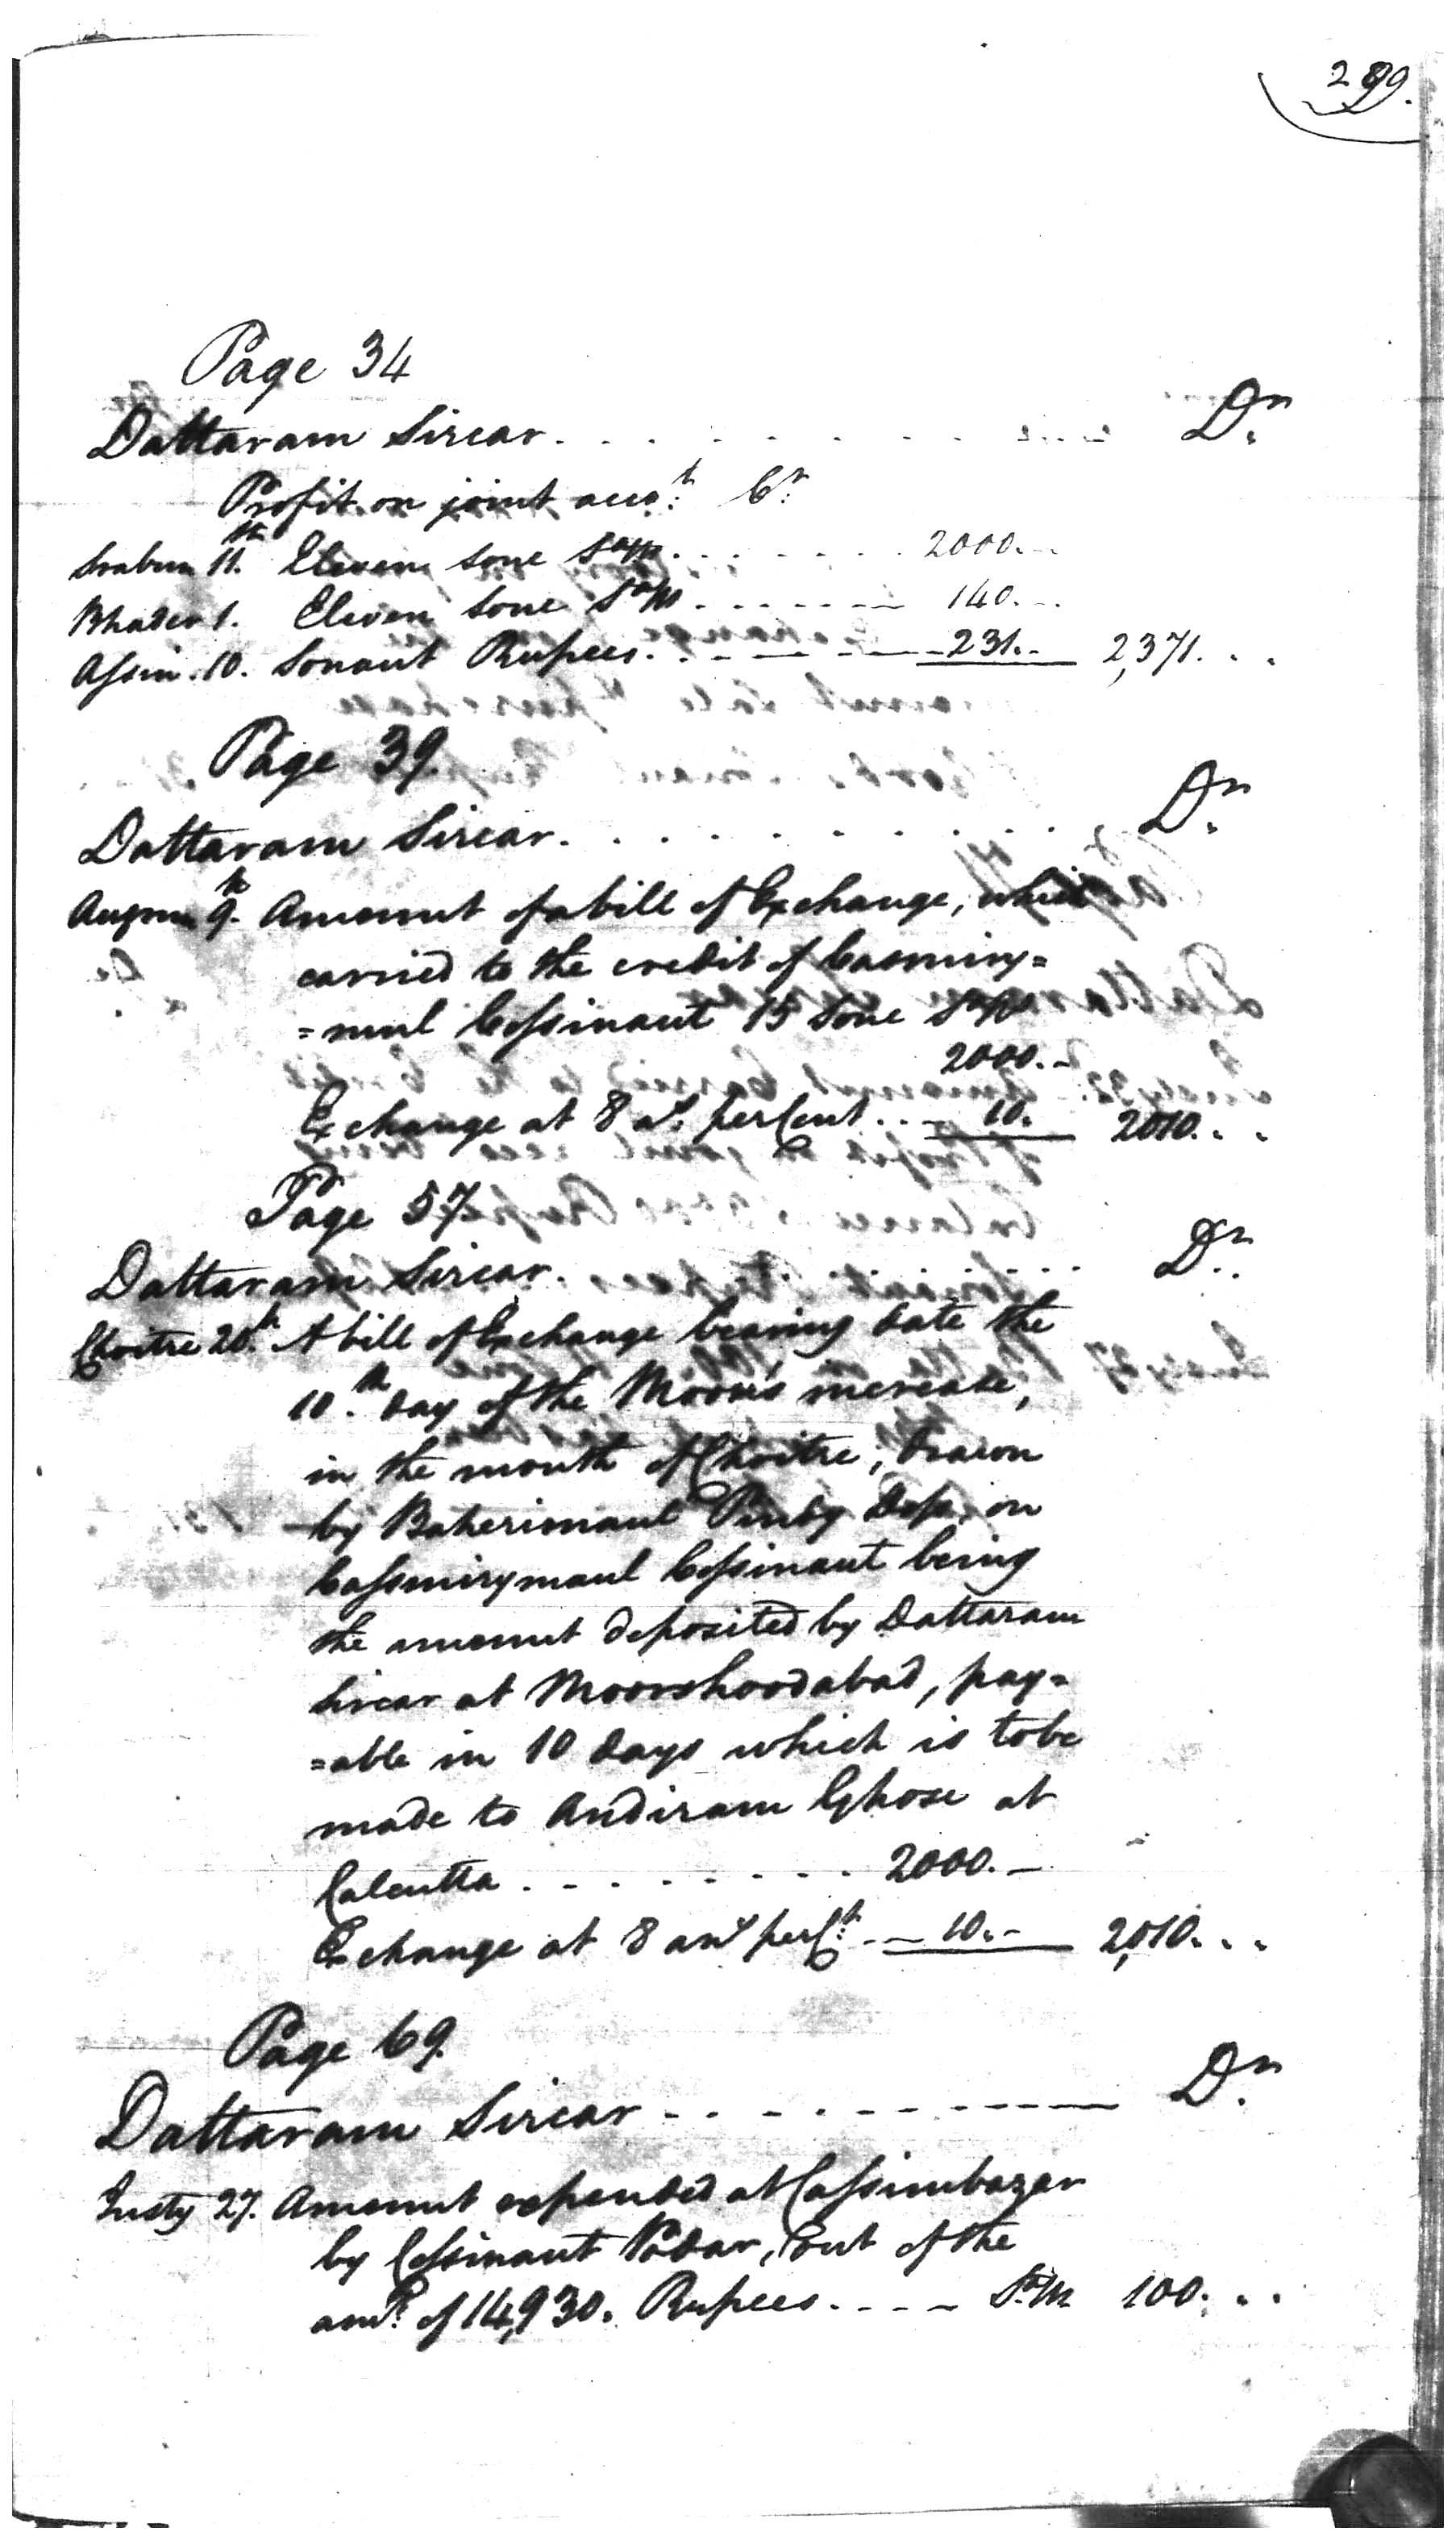 299.
Page 34
Dattaram Sircar. . . . . . . . . . Dr.
Profit on joint acco.t Cr.
Srabun 11.th Eleven Sone SaRs. . . . . . . 2000.-
Bhader 1. Eleven Sone SaRs . . . . . . 140.-
Assin. 10. Sonaut Rupees. . . . . . 231.- 2,371. . .
Page 39.
Dattaram Sircar. . . . . . . . . . Dr.
Augrun 9.th Amount of a bill of Exchange, which
carried to the credit of Casmiry=
=mul Cossinaut 15 Sone SaRs
2000.-
Exchange at 8 as. per Cent . . . 10. 2010. . .
Page 57
Dattaram Sircar. . . . . . . . . . Dr.
Choitre 20.th A bill of Exchange bearing date the
10.th day of the Moon's increase,
in the month of Choitre, drawn
by Baherimaul Dop. on
Cassmirymaul Cossinaut being
the amount deposited by Dattaram
Sircar at Moorshoodabad, pay=
=able in 10 days which is to be
made to Andiram Ghose at
Calcutta . . . . . . . . . 2000.-
Exchange at 8 ans. per Ct. . - 10.- 2,010. . .
Page 69.
Dattaram Sircar - . . - . - - - - - Dr.
Justy 27. Amount expended at Cassimbazar
by Cossinaut Podar, out of the
amt. of 14,930. Rupees. . . - - Sa.Rs 100. . .